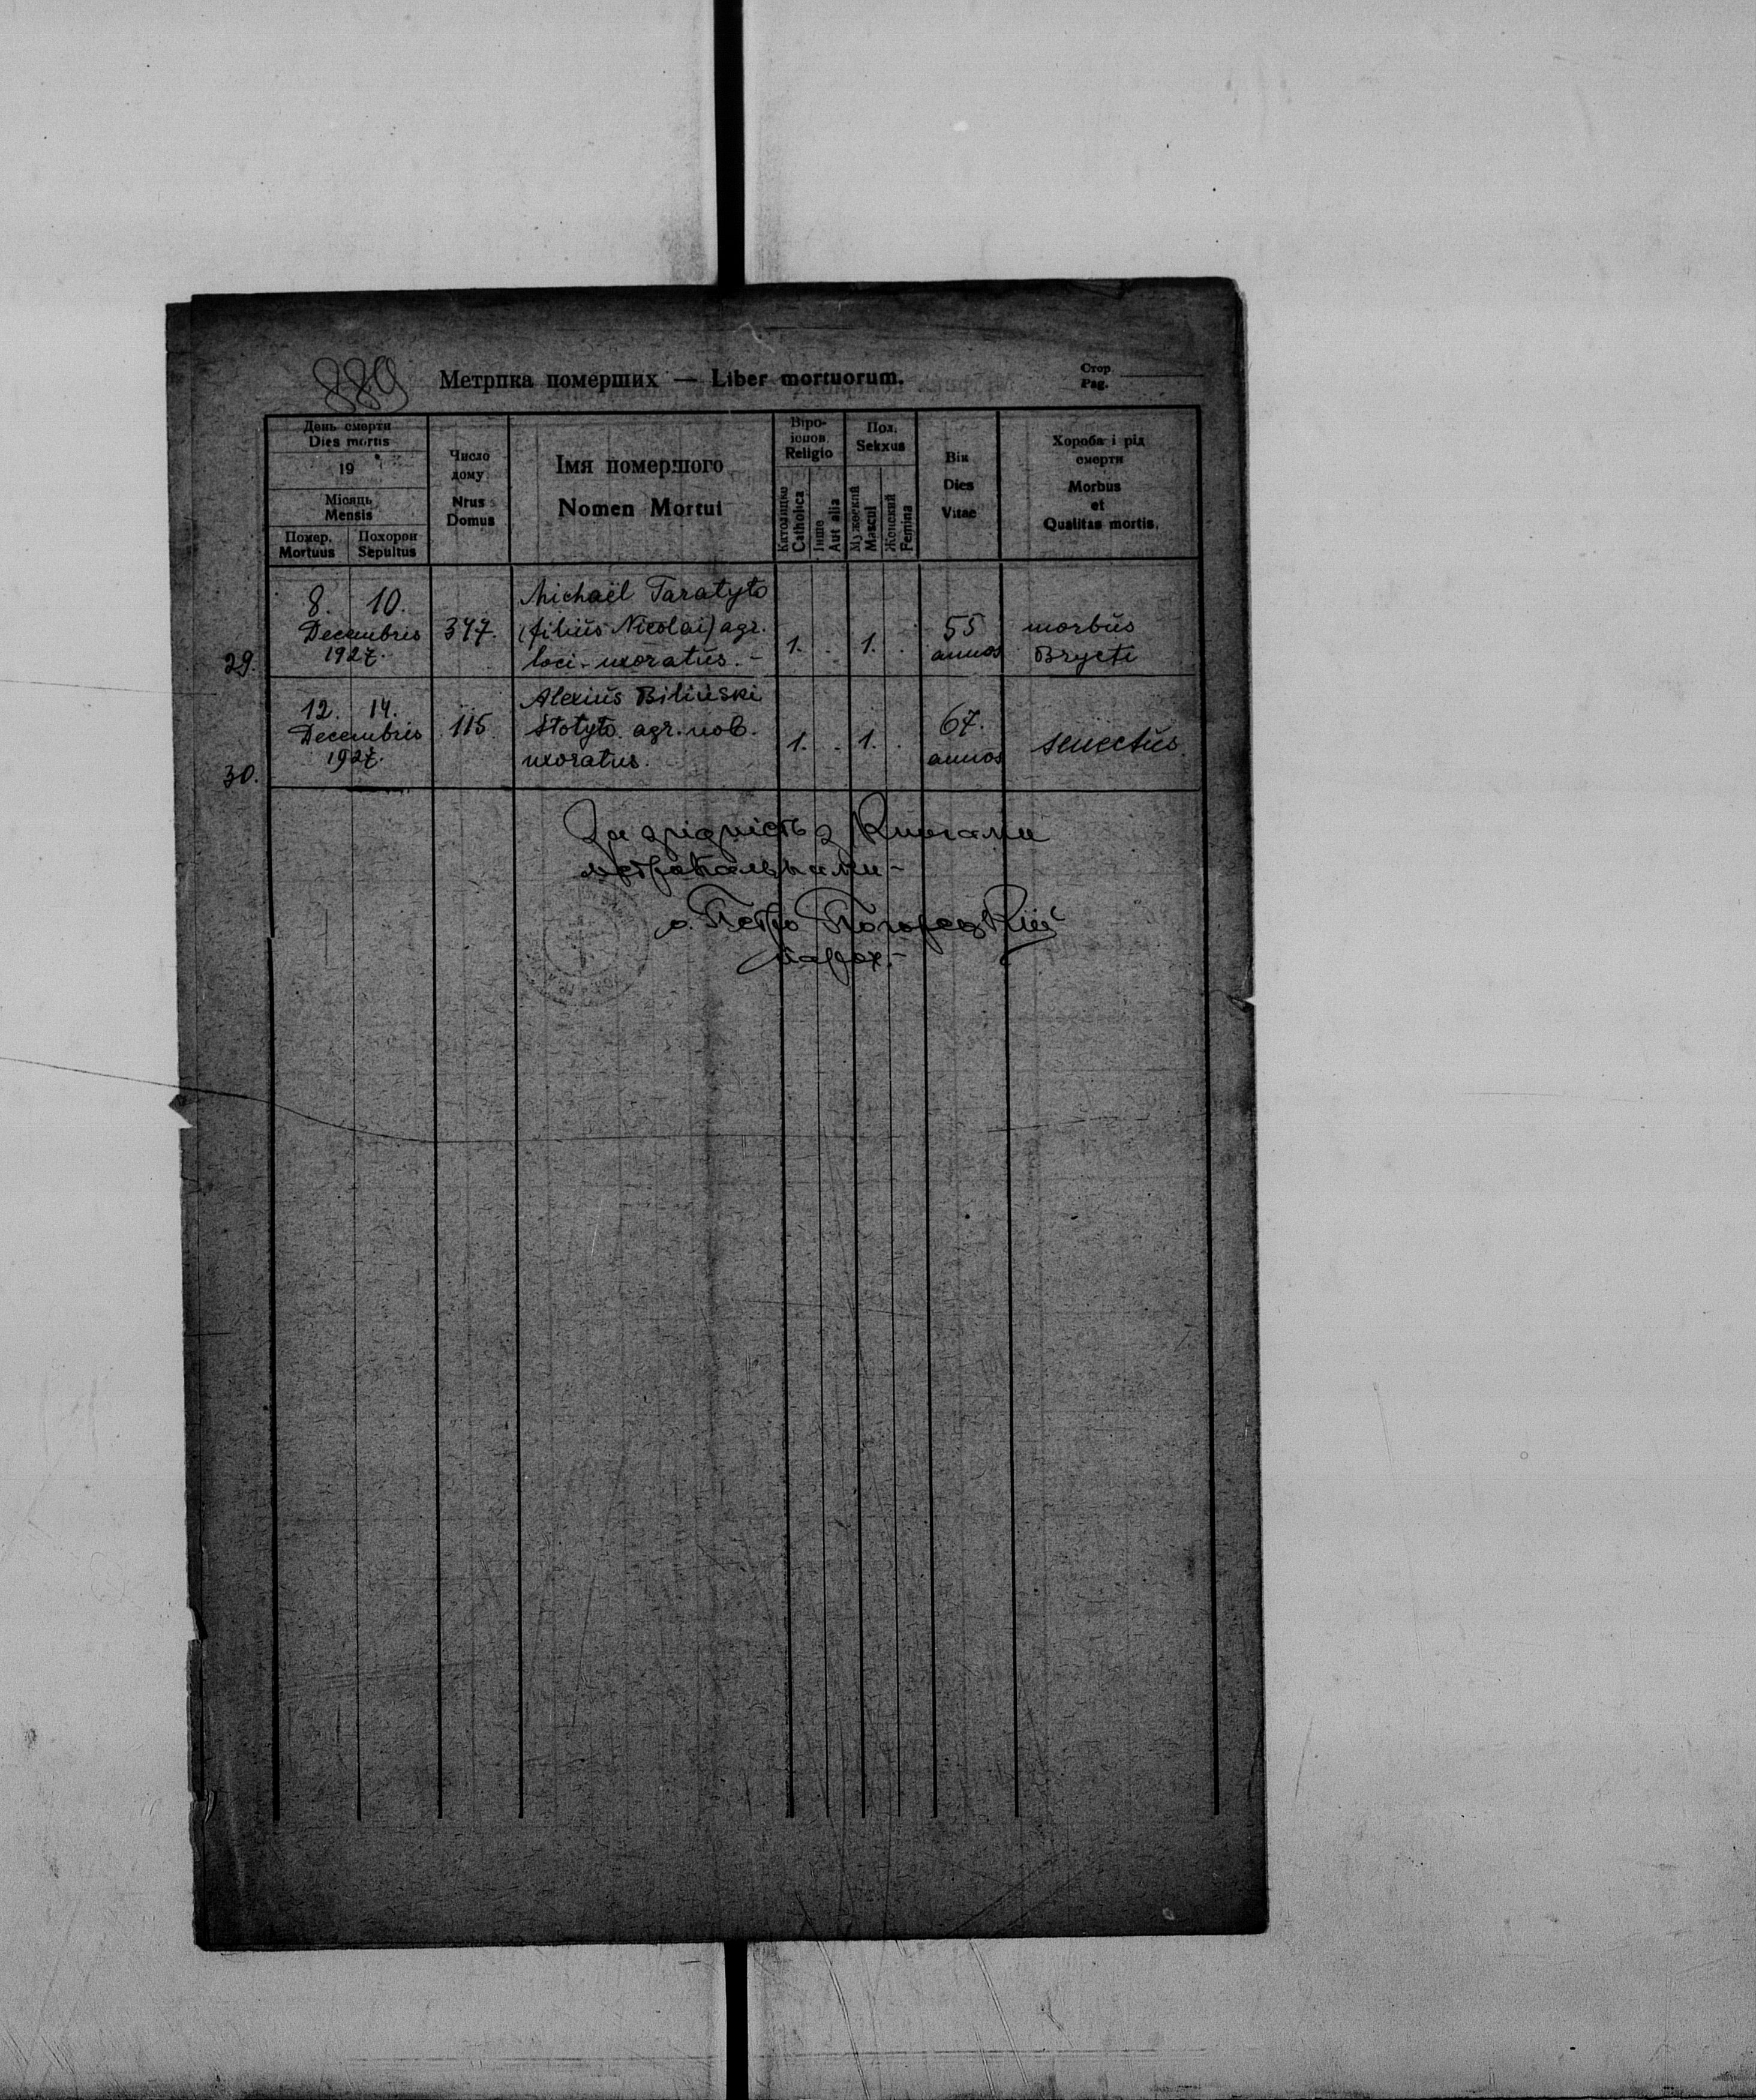 889
Метрика померших — Liber mortuorum.
Стор.
Pag.
День смерти
Dies mortis
19
Місяць
Mensis
Помер. Похорон
Mortuus Sepultus
Число
дому
Nrus
Domus
Імя помершого
Nomen Mortui
Віро-
ісцов.
Religio
Католицко
Catholica
Інше
Aut alia
Пол.
Sekxus
Мужеский
Masculi
Женский
Femina
Вік
Dies
Vitae
Хороба і рід
смерти
Morbus
et
Qualitas mortis.
29.
8. 10.
Decembris
1927.
347.
Michaël Taratyto
(filiŭs Nicolai) agr.
loci - uxoratŭs. -
1. . 1. .
55
annos
morbŭs
Brycti
30.
12. 14.
Decembris
1927.
115.
Alexiŭs Biliński
Stotyto. agr. nob.
uxoratus.
1. . 1. .
67.
annos
senectŭs
За згідність з Книгами
метрикальними -
о. Петро Погорецкий
парох. -